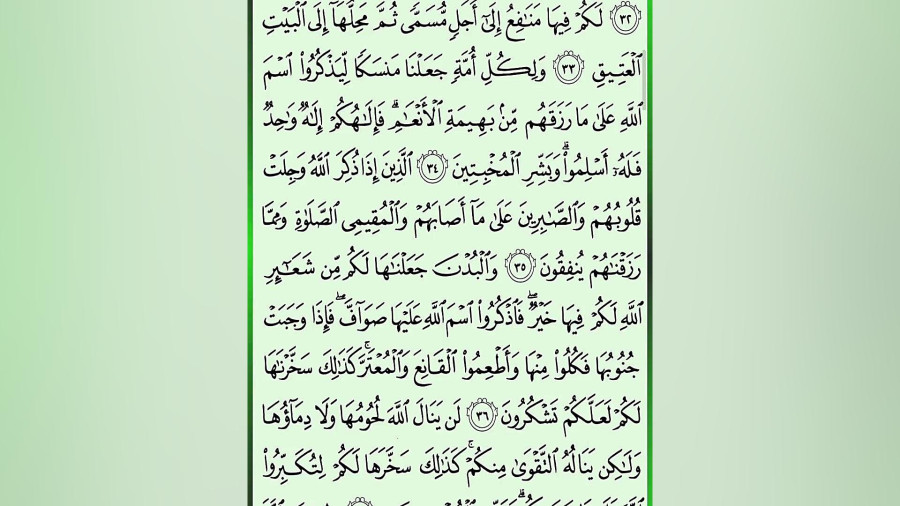 ٣٢ لَكُمْ فِيهَا مَنَٰفِعُ إِلَىٰٓ أَجَلٍ مُّسَمًّى ثُمَّ مَحِلُّهَآ إِلَى ٱلْبَيْتِ
ٱلْعَتِيقِ ٣٣ وَلِكُلِّ أُمَّةٍ جَعَلْنَا مَنسَكًا لِّيَذْكُرُوا۟ ٱسْمَ
ٱللَّهِ عَلَىٰ مَا رَزَقَهُم مِّنۢ بَهِيمَةِ ٱلْأَنْعَٰمِۗ فَإِلَٰهُكُمْ إِلَٰهٌ وَٰحِدٌ
فَلَهُۥٓ أَسْلِمُوا۟ۗ وَبَشِّرِ ٱلْمُخْبِتِينَ ٣٤ ٱلَّذِينَ إِذَا ذُكِرَ ٱللَّهُ وَجِلَتْ
قُلُوبُهُمْ وَٱلصَّٰبِرِينَ عَلَىٰ مَآ أَصَابَهُمْ وَٱلْمُقِيمِى ٱلصَّلَوٰةِ وَمِمَّا
رَزَقْنَٰهُمْ يُنفِقُونَ ٣٥ وَٱلْبُدْنَ جَعَلْنَٰهَا لَكُم مِّن شَعَٰٓئِرِ
ٱللَّهِ لَكُمْ فِيهَا خَيْرٌۖ فَٱذْكُرُوا۟ ٱسْمَ ٱللَّهِ عَلَيْهَا صَوَآفَّۖ فَإِذَا وَجَبَتْ
جُنُوبُهَا فَكُلُوا۟ مِنْهَا وَأَطْعِمُوا۟ ٱلْقَانِعَ وَٱلْمُعْتَرَّۚ كَذَٰلِكَ سَخَّرْنَٰهَا
لَكُمْ لَعَلَّكُمْ تَشْكُرُونَ ٣٦ لَن يَنَالَ ٱللَّهَ لُحُومُهَا وَلَا دِمَآؤُهَا
وَلَٰكِن يَنَالُهُ ٱلتَّقْوَىٰ مِنكُمْۚ كَذَٰلِكَ سَخَّرَهَا لَكُمْ لِتُكَبِّرُوا۟